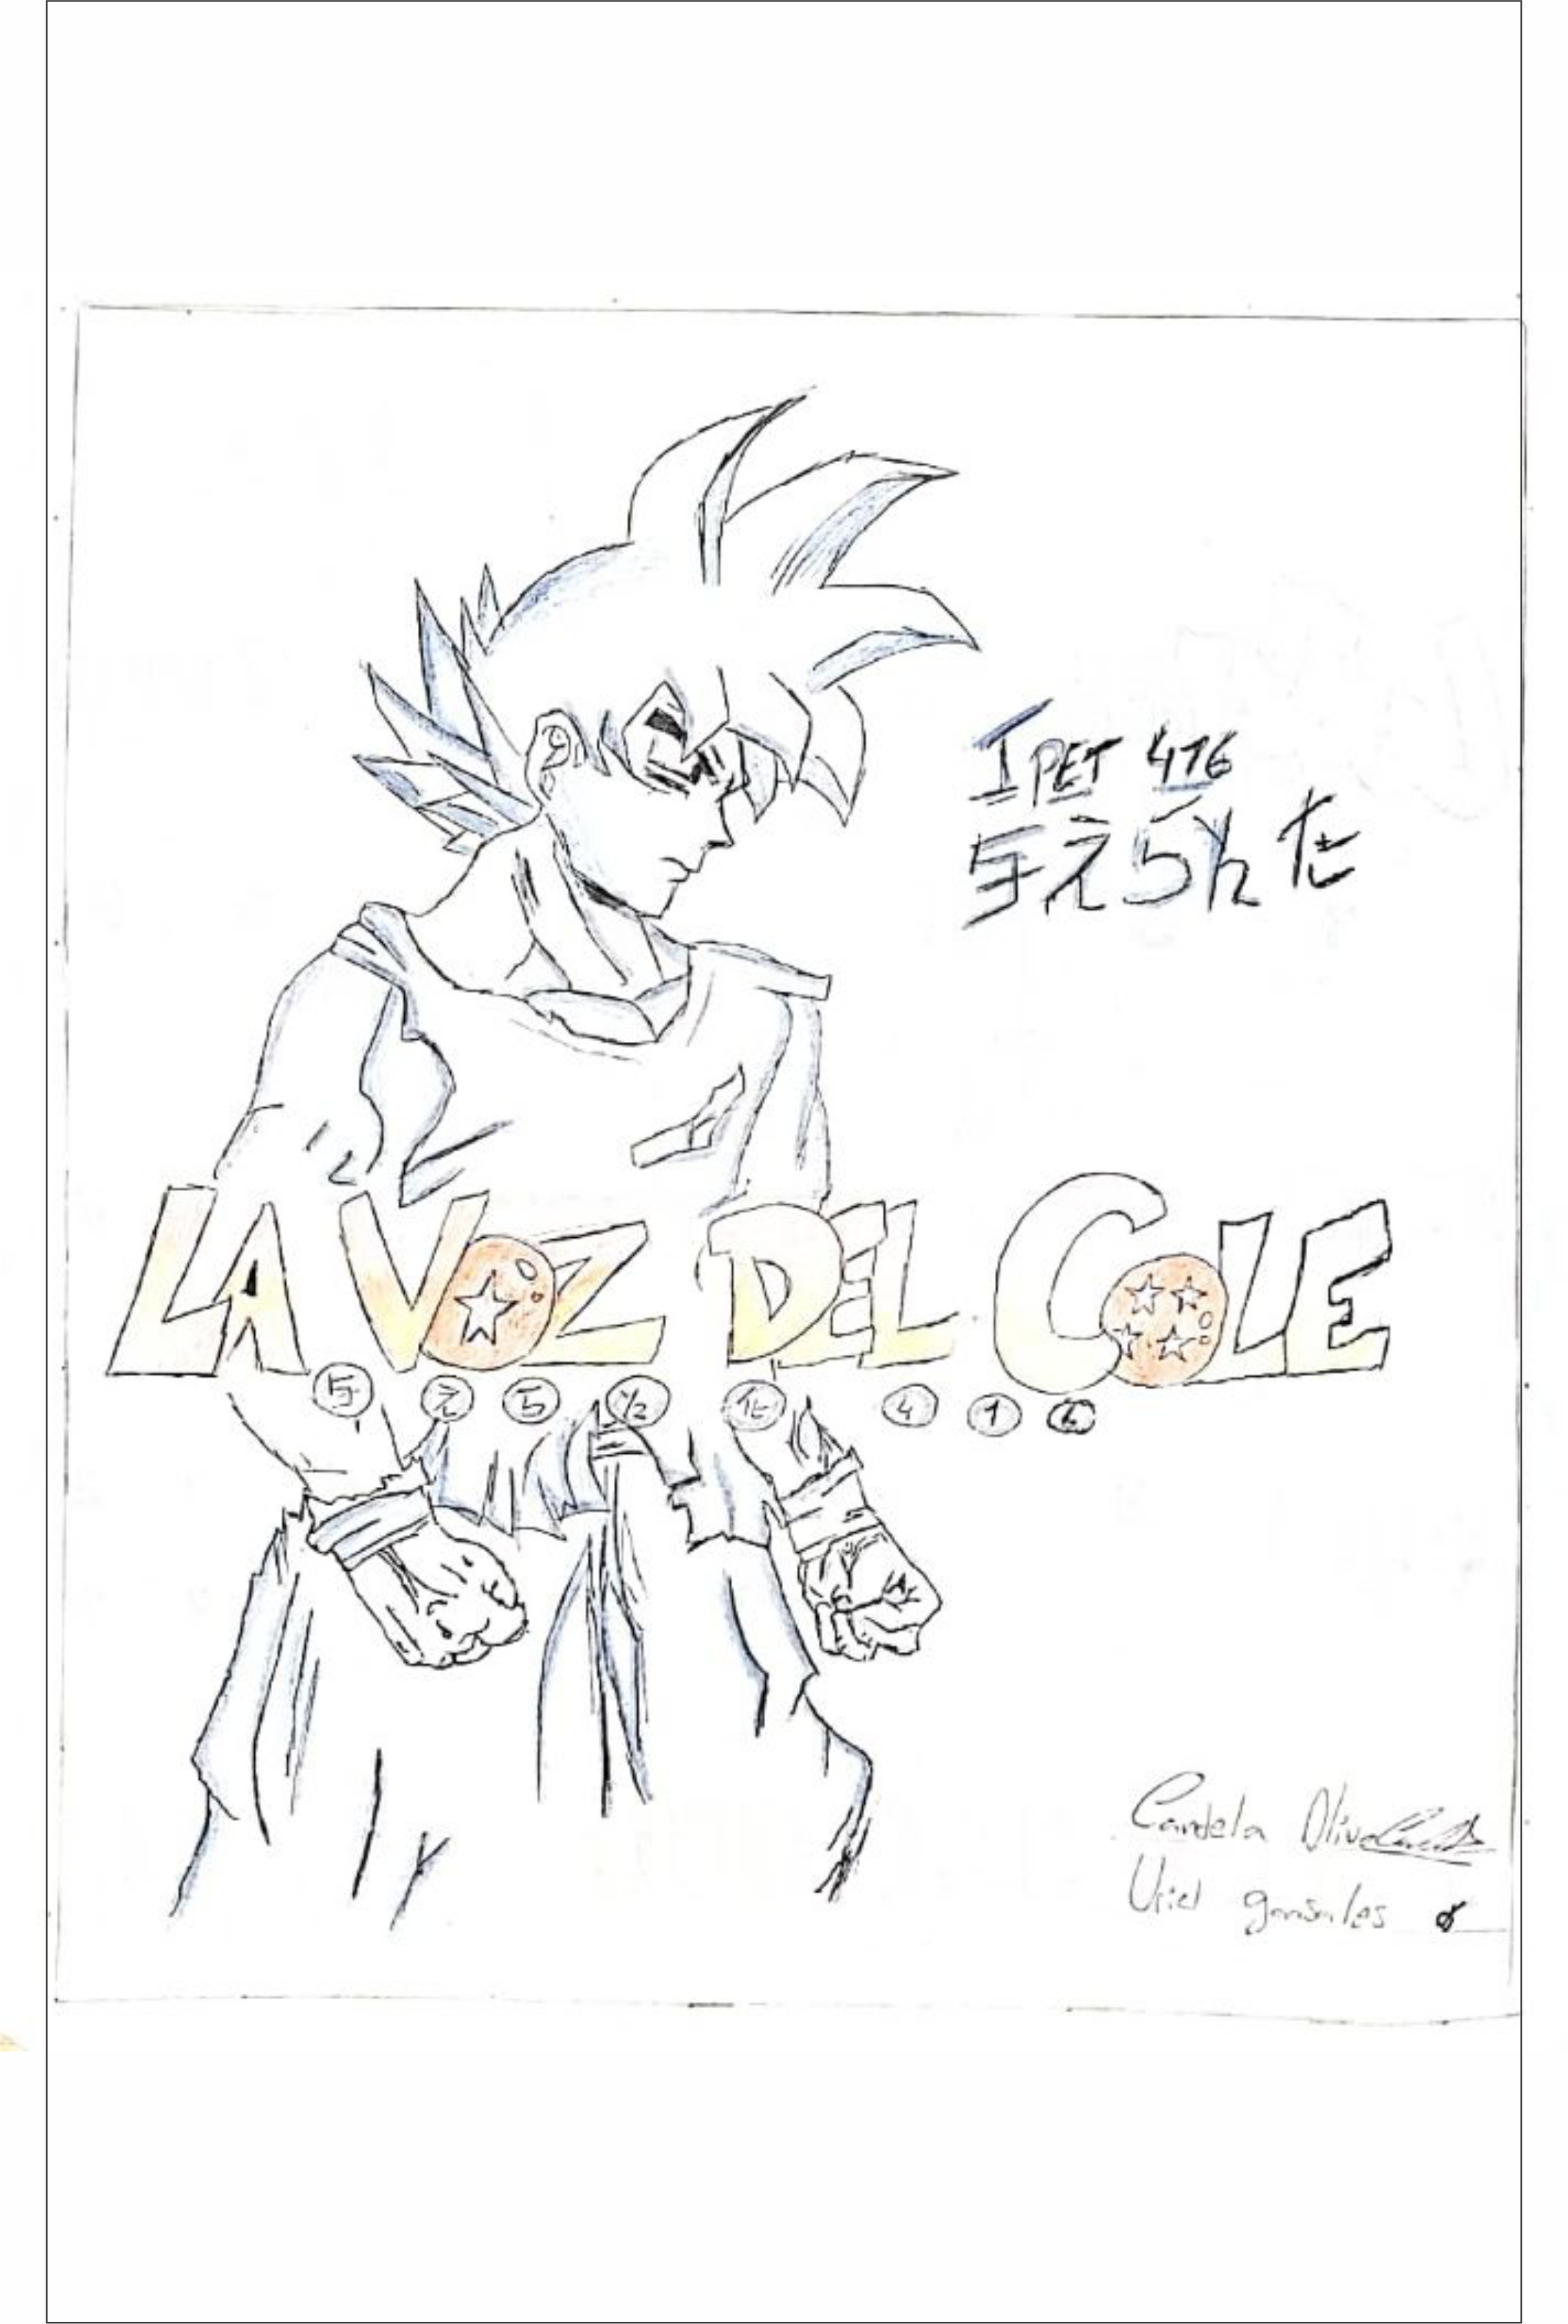 IPET 416
与えられた
LA VOZ DEL COLE
与 え 5 1/2 た 4 1 6
Candela Oliva
Uriel gonsales